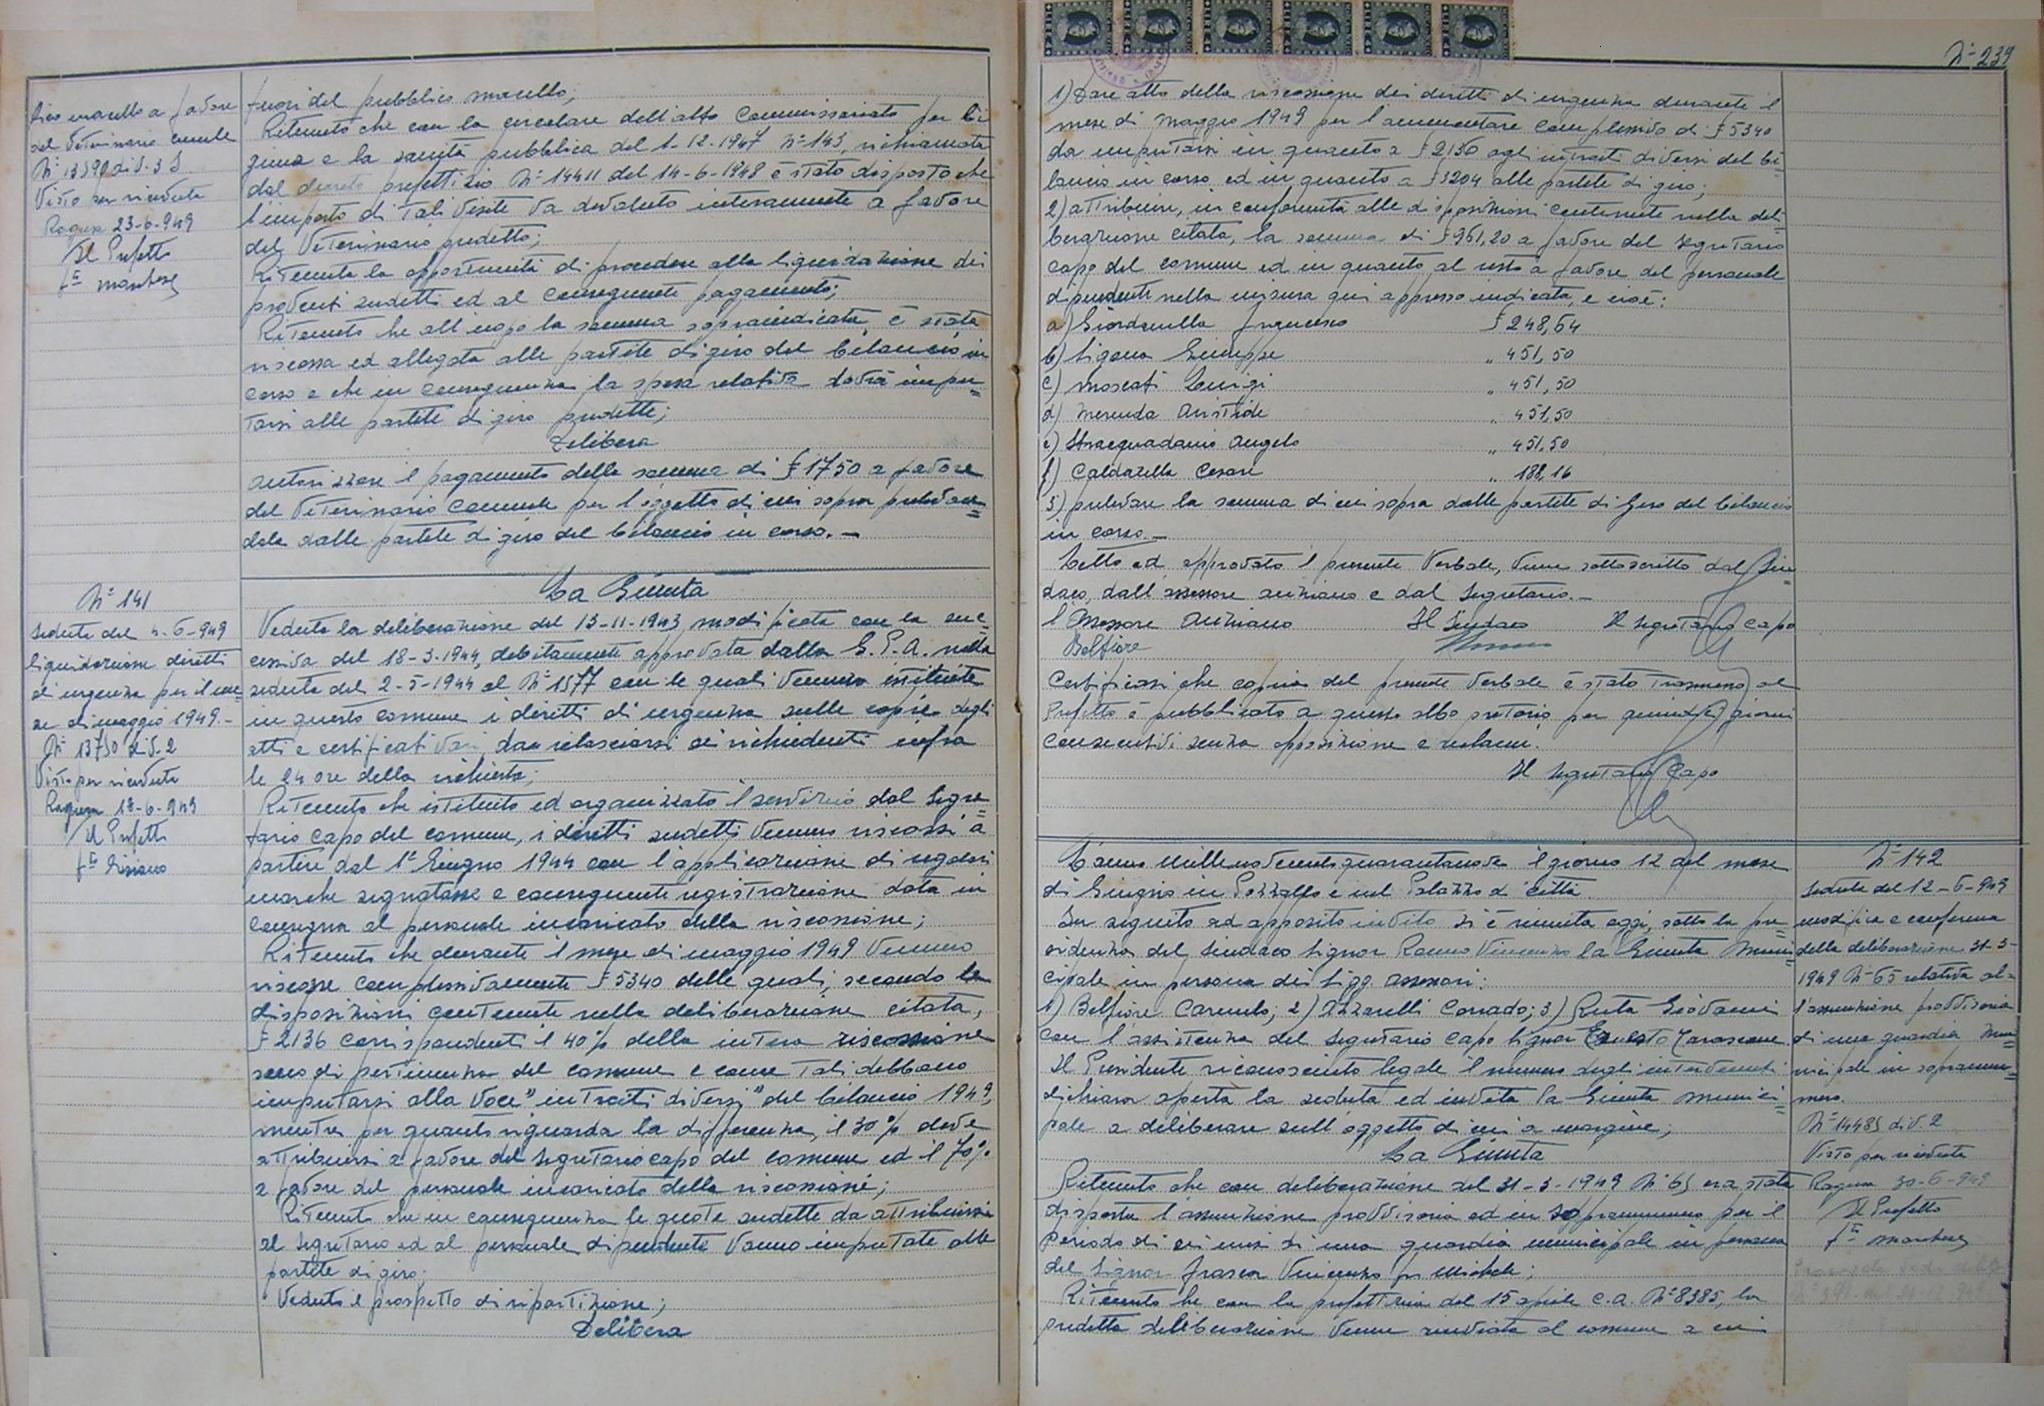 fuori del pubblico macello;
Ritenuto che con la circolare dell'alto Commissariato per l'i
giene e la sanità pubblica del 1-12-1947 Nº 143, richiamata
dal decreto prefettizio Nº 14411 del 14-6-1948 è stato disposto che
l'importo di tali visite va devoluto interamente a favore
del Veterinario predetto;
Ritenuta la opportunità di procedere alla liquidazione dei
proventi sudetti ed al conseguente pagamento;
Ritenuto che all'uopo la somma sopraindicata è stata
riscossa ed allegata alle partite di giro del bilancio in
corso e che in conseguenza la spesa relativa dovrà impu=
tarsi alle partite di giro predette;
Delibera
autorizzare il pagamento della somma di £ 1750 a favore
del Veterinario Comunale per l'oggetto di cui sopra prelevan=
dola dalle partite di giro del bilancio in corso.-
fuori macello a favore
del Veterinario comunale
Nº 13590 div. 3 S
Visto per ricevuta
Ragusa 23-6-949
Il Prefetto
fto
Nº 141
Seduta del 4-6-949
liquidazione diritti
di urgenza per il me=
se di maggio 1949.-
Nº 13750 div. 2
Visto per ricevuta
Ragusa 18-6-949
Il Prefetto
fto
La Giunta
Veduta la deliberazione del 13-11-1943 modificata con la suc=
cessiva del 18-3-1944, debitamente approvata dalla G.P.A. nella
seduta del 2-5-1944 al Nº 1577 con le quali vennero istituite
in questo comune i diritti di urgenza sulle copie degli
atti e certificati vari da rilasciarsi ai richiedenti infra
le 24 ore della richiesta;
Ritenuto che istituito ed organizzato il servizio dal Segre=
tario capo del comune, i diritti sudetti vennero riscossi a
partire dal 1º Giugno 1944 con l'applicazione di regolari
marche segnatasse e conseguente registrazione data in
consegna al personale incaricato della riscossione;
Ritenuto che durante il mese di maggio 1949 vennero
riscosse complessivamente £ 5340 delle quali, secondo le
disposizioni contenute nella deliberazione citata,
£ 2136 corrispondenti il 40% della intera riscossione
sono di pertinenza del comune e come tali debbono
imputarsi alla voce "introiti diversi" del bilancio 1949,
mentre per quanto riguarda la differenza, il 30% deve
attribuirsi a favore del Segretario capo del comune ed il 70%
a favore del personale incaricato della riscossione;
Ritenuto che in conseguenza le quote sudette da attribuirsi
al Segretario ed al personale dipendente vanno imputate alle
partite di giro;
Veduto il prospetto di ripartizione;
Delibera
Nº 239
1) Dare atto della riscossione dei diritti di urgenza durante il
mese di maggio 1949 per l'ammontare complessivo di £ 5340
da imputarsi in quanto a £ 2136 agli introiti diversi del bi=
lancio in corso ed in quanto a £ 3204 alle partite di giro;
2) attribuire, in conformità alle disposizioni contenute nella deli=
berazione citata, la somma di £ 961,20 a favore del Segretario
capo del comune ed in quanto al resto a favore del personale
dipendente nella misura qui appresso indicata, e cioè:
a) Giordanella Francesco £ 248,64
b) Ligama Giuseppe " 451,50
c) Moscati Luigi " 451,50
d) Merenda Aristide " 451,50
e) Stracquadanio Angelo " 451,50
f) Caldarella Cesare " 188,16
3) prelevare la somma di cui sopra dalle partite di Giro del bilancio
in corso.-
Letto ed approvato il presente Verbale, viene sottoscritto dal Sin=
daco, dall'assessore anziano e dal Segretario.-
l'Assessore Anziano Il Sindaco Il Segretario Capo
Belfiore
Certificasi che copia del presente Verbale è stato trasmesso al
Prefetto e pubblicato a questo albo pretorio per quindici giorni
consecutivi senza opposizione e reclami.
Il Segretario Capo
L'anno Millenovecentoquarantanove il giorno 12 del mese
di Giugno in Pozzallo e nel Palazzo di città.
In seguito ad apposito invito si è riunita oggi, sotto la pre=
sidenza del Sindaco Signor Vincenzo la Giunta Muni=
cipale in persona dei Sigg. Assessori:
1) Belfiore Carmelo; 2) Azzarelli Corrado; 3) Ruta Giovanni
con l'assistenza del Segretario Capo Signor Ernesto
Il Presidente riconosciuto legale il numero degli intervenuti
dichiara aperta la seduta ed invita la Giunta Munici=
pale a deliberare sull'oggetto di cui a margine;
La Giunta
Ritenuto che con deliberazione del 31-3-1949 Nº 65 era stata
disposta l'assunzione provvisoria ed in soprannumero per il
periodo di sei mesi di una guardia municipale in persona
del Signor Frasca Vincenzo fu Michele;
Ritenuto che con la prefettizia del 15 aprile c.a. Nº 8385, la
predetta deliberazione venne rinviata al comune a cui
Nº 142
Seduta del 12-6-949
modifica e conferma
della deliberazione 31-3-
1949 Nº 65 relativa al=
l'assunzione provvisoria
di una guardia mu=
nicipale in soprannu=
mero.
Nº 14485 div. 2
Visto per ricevuta
Ragusa 30-6-949
Il Prefetto
fto